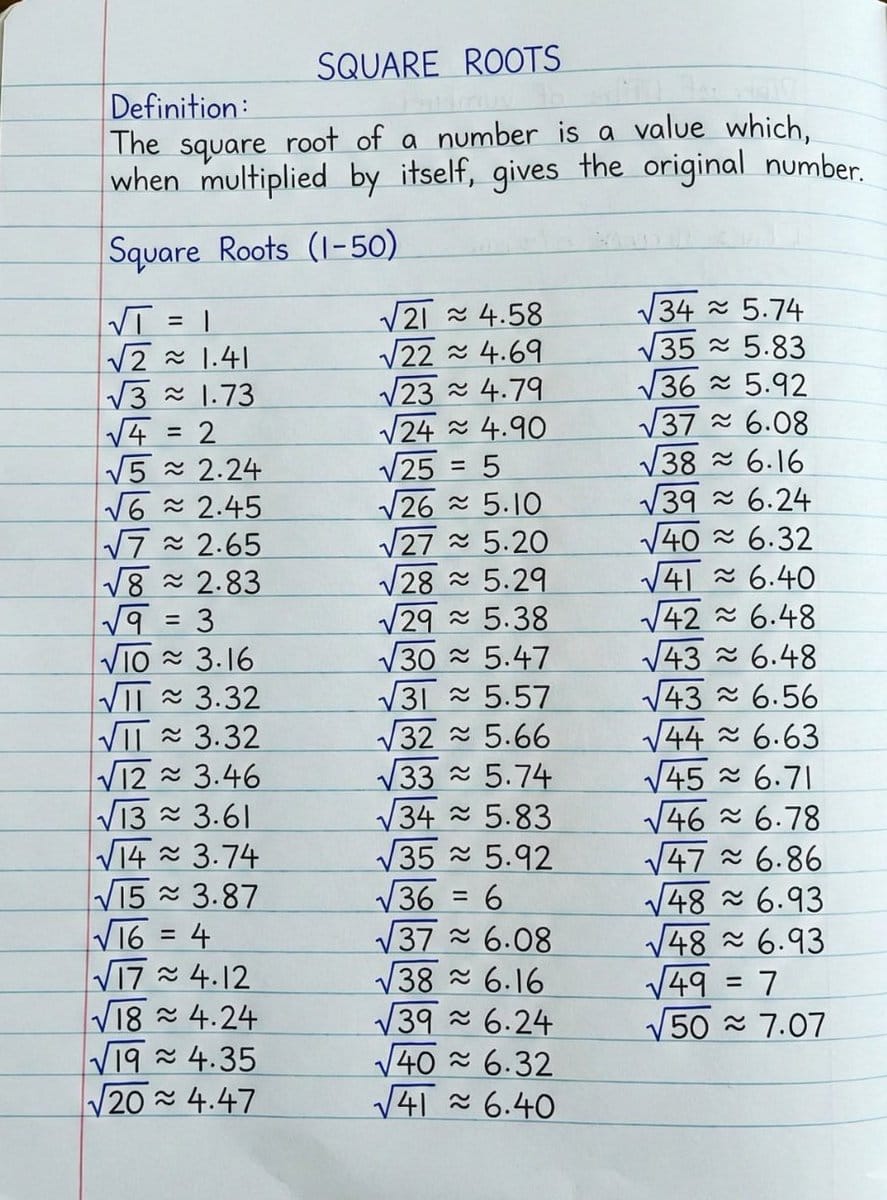 SQUARE ROOTS
Definition:
The square root of a number is a value which,
when multiplied by itself, gives the original number.
Square Roots (1-50)
√1 = 1
√2 ≈ 1.41
√3 ≈ 1.73
√4 = 2
√5 ≈ 2.24
√6 ≈ 2.45
√7 ≈ 2.65
√8 ≈ 2.83
√9 = 3
√10 ≈ 3.16
√11 ≈ 3.32
√11 ≈ 3.32
√12 ≈ 3.46
√13 ≈ 3.61
√14 ≈ 3.74
√15 ≈ 3.87
√16 = 4
√17 ≈ 4.12
√18 ≈ 4.24
√19 ≈ 4.35
√20 ≈ 4.47
√21 ≈ 4.58
√22 ≈ 4.69
√23 ≈ 4.79
√24 ≈ 4.90
√25 = 5
√26 ≈ 5.10
√27 ≈ 5.20
√28 ≈ 5.29
√29 ≈ 5.38
√30 ≈ 5.47
√31 ≈ 5.57
√32 ≈ 5.66
√33 ≈ 5.74
√34 ≈ 5.83
√35 ≈ 5.92
√36 = 6
√37 ≈ 6.08
√38 ≈ 6.16
√39 ≈ 6.24
√40 ≈ 6.32
√41 ≈ 6.40
√34 ≈ 5.74
√35 ≈ 5.83
√36 ≈ 5.92
√37 ≈ 6.08
√38 ≈ 6.16
√39 ≈ 6.24
√40 ≈ 6.32
√41 ≈ 6.40
√42 ≈ 6.48
√43 ≈ 6.48
√43 ≈ 6.56
√44 ≈ 6.63
√45 ≈ 6.71
√46 ≈ 6.78
√47 ≈ 6.86
√48 ≈ 6.93
√48 ≈ 6.93
√49 = 7
√50 ≈ 7.07